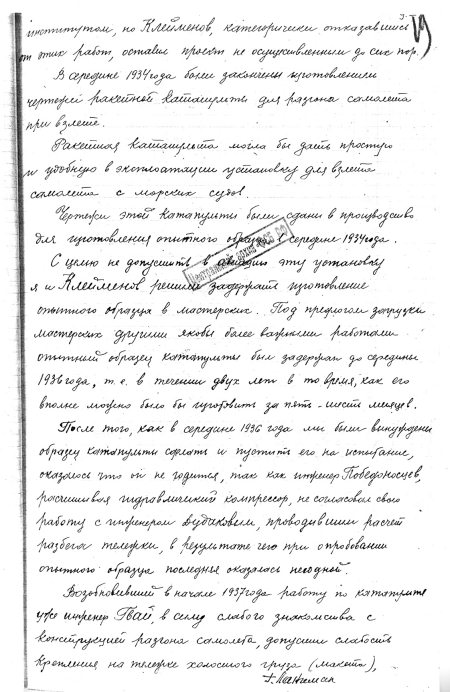 3.
институтом, но Клейменов, категорически отказавшись
от этих работ, оставил проект не осуществленным до сих пор.
В середине 1934 года были закончены изготовлением
чертежи ракетной катапульты для разгона самолета
при взлете.
Ракетная катапульта могла бы дать простую
и удобную в эксплоатации установку для взлета
самолета с морских судов.
Чертежи этой катапульты были сданы в производство
для изготовления опытного образца в середине 1934 года.
Центральный архив ФСБ РФ
С целью не допустить в авиацию эту установку
я и Клейменов решили задержать изготовление
опытного образца в мастерских. Под предлогом загрузки
мастерских другими якобы более важными работами
опытный образец катапульты был задержан до середины
1936 года, т.е. в течении двух лет в то время, как его
вполне можно было бы изготовить за пять-шесть месяцев.
После того, как в середине 1936 года мы были вынуждены
образец катапульты сделать и пустить его на испытание,
оказалось что он не годится, так как инженер Победоносцев,
расчитывая гидравлический компрессор, не согласовал свою
работу с инженером Дудаковым, проводившим расчет
разбега тележки, в результате чего при опробовании
опытного образца последнее оказалось негодной.
Возобновивший в начале 1937 года работу по катапульте
уже инженер Гвай, в силу слабого знакомства с
конструкцией разгона самолета, допустил слабость
крепления на тележке холостого груза (макета),
Г. Лангемак